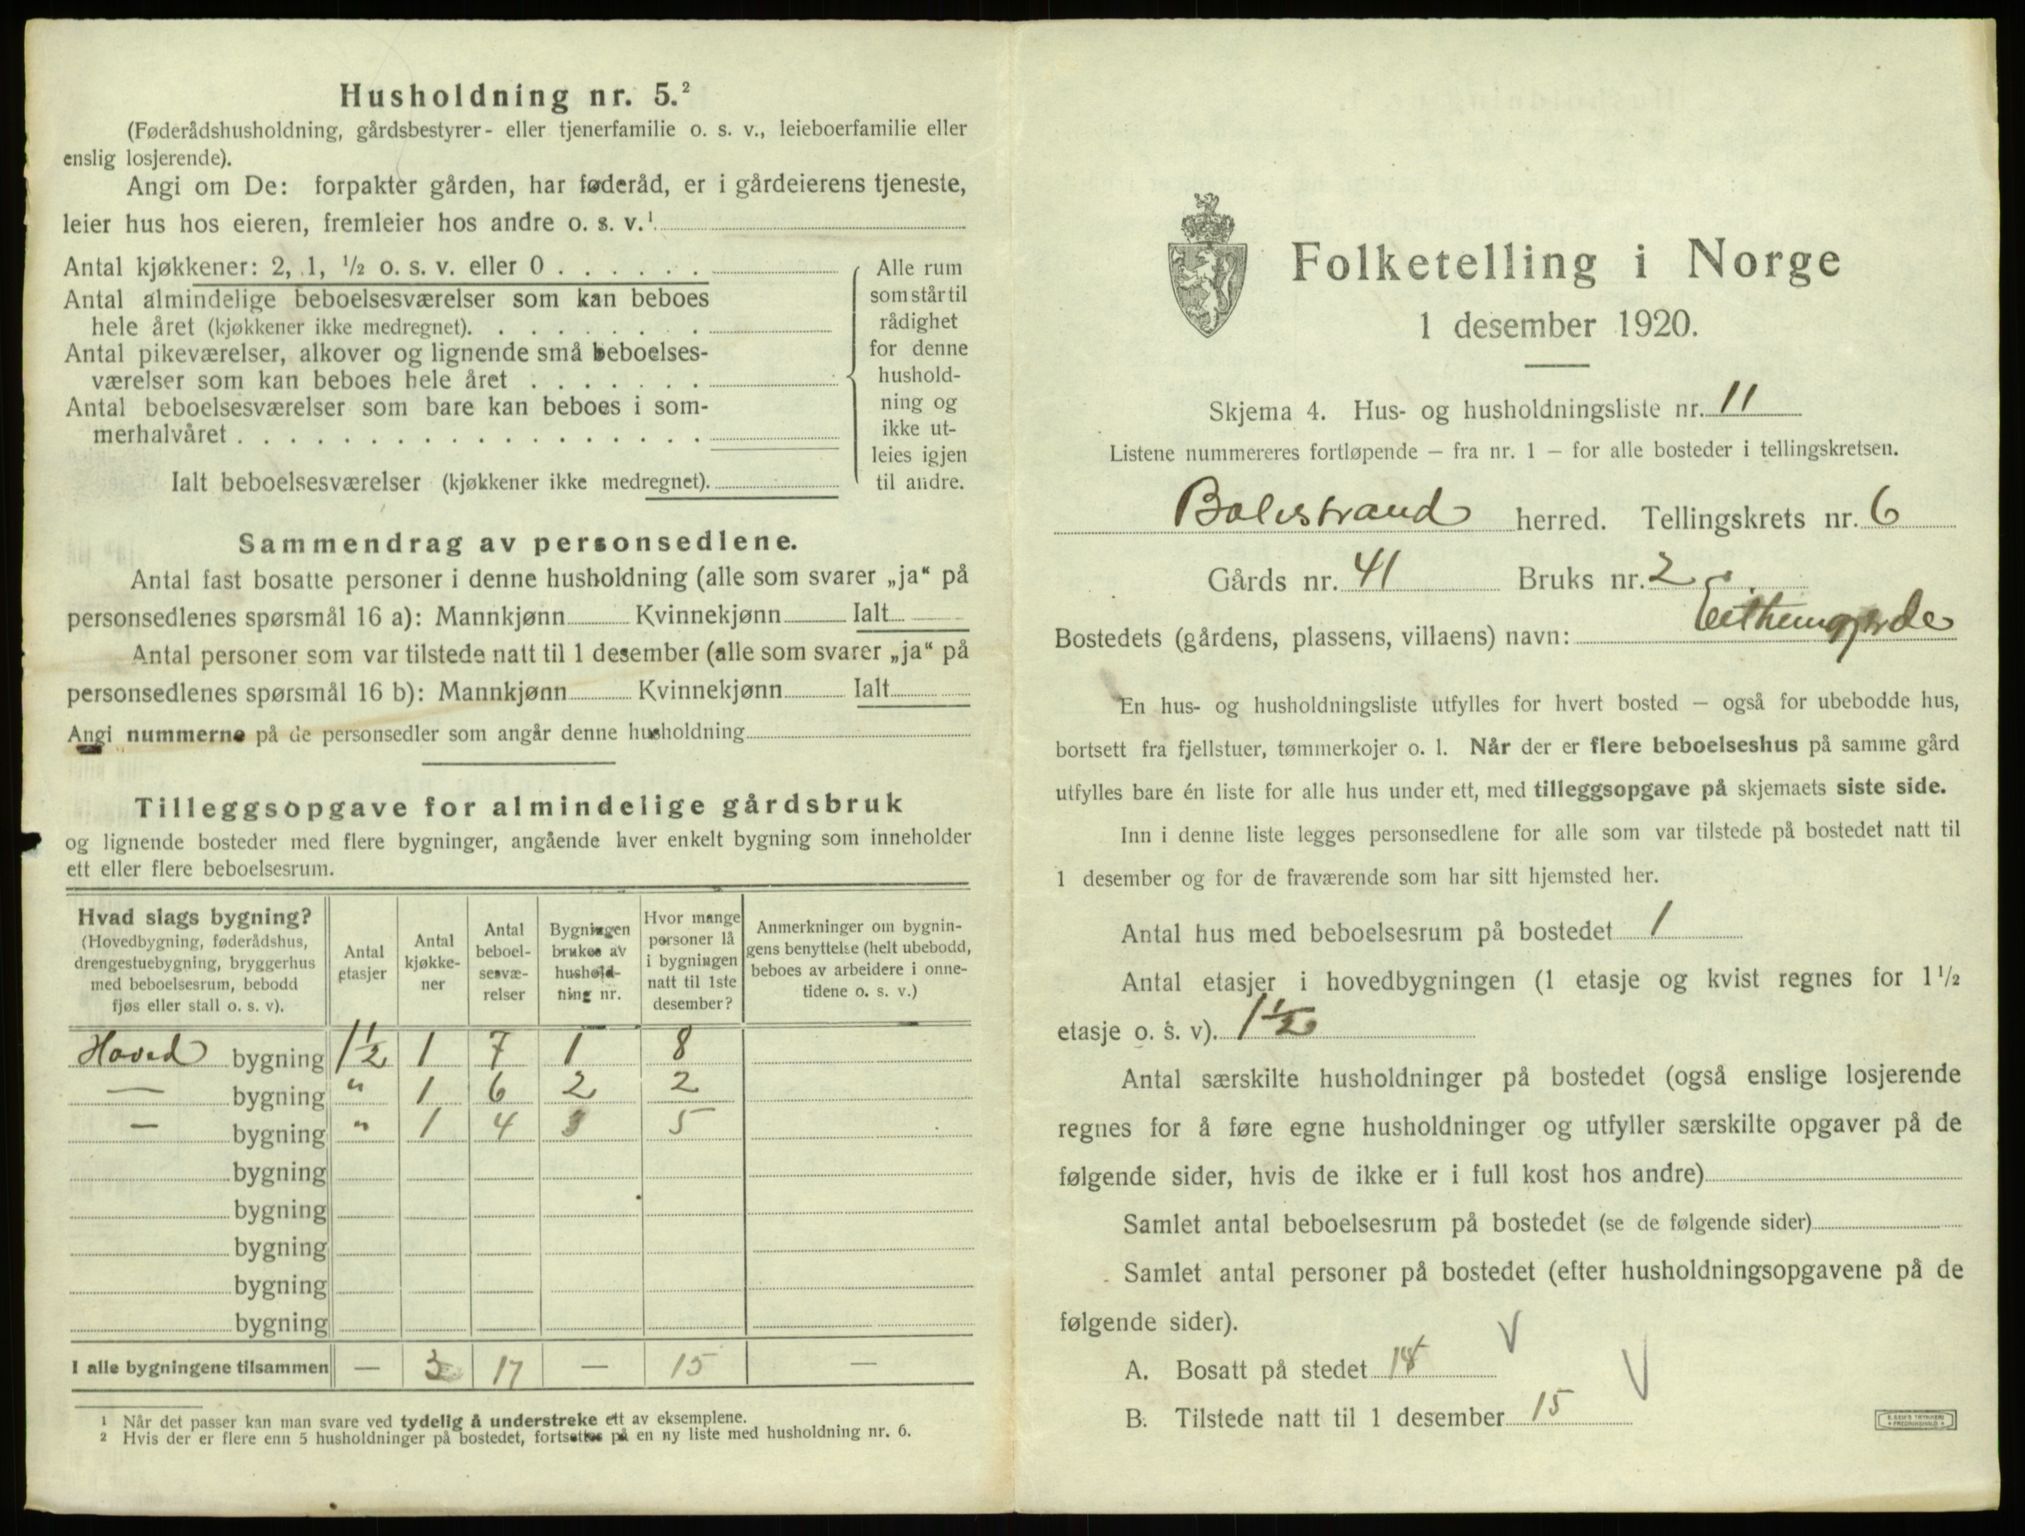 Husholdning nr. 5.²
(Føderådshusholdning, gårdsbestyrer- eller tjenerfamilie o. s. v., leieboerfamilie eller
enslig losjerende).
Angi om De: forpakter gården, har føderåd, er i gårdeierens tjeneste,
leier hus hos eieren, fremleier hos andre o. s. v.¹
Antal kjøkkener: 2, 1, ½ o. s. v. eller 0 . . . . . .
Antal almindelige beboelsesværelser som kan beboes
hele året (kjøkkener ikke medregnet). . . . . . . . .
Antal pikeværelser, alkover og lignende små beboelses-
værelser som kan beboes hele året . . . . . . .
Antal beboelsesværelser som bare kan beboes i som-
merhalvåret . . . . . . . . . . . . . . . . . .
Ialt beboelsesværelser (kjøkkener ikke medregnet).
Alle rum
som står til
rådighet
for denne
hushold-
ning og
ikke ut-
leies igjen
til andre.
Sammendrag av personsedlene.
Antal fast bosatte personer i denne husholdning (alle som svarer „ja“ på
personsedlenes spørsmål 16 a): Mannkjønn Kvinnekjønn Ialt
Antal personer som var tilstede natt til 1 desember (alle som svarer „ja“ på
personsedlenes spørsmål 16 b): Mannkjønn Kvinnekjønn Ialt
Angi nummerne på de personsedler som angår denne husholdning
Tilleggsopgave for almindelige gårdsbruk
og lignende bosteder med flere bygninger, angående hver enkelt bygning som inneholder
ett eller flere beboelsesrum.
Hvad slags bygning?
(Hovedbygning, føderådshus,
drengestuebygning, bryggerhus
med beboelsesrum, bebodd
fjøs eller stall o. s. v).
Antal
etasjer
Antal
kjøkke-
ner
Antal
beboel-
sesvæ-
relser
Bygningen
brukes av
hushold-
ning nr.
Hvor mange
personer lå
i bygningen
natt til 1ste
desember?
Anmerkninger om bygnin-
gens benyttelse (helt ubebodd,
beboes av arbeidere i onne-
tidene o. s. v.)
Hoved bygning 1½ 1 7 1 8
— bygning " 1 6 2 2
— bygning " 1 4 3 5
bygning
bygning
bygning
bygning
bygning
I alle bygningene tilsammen — 3 17 — 15 —
¹ Når det passer kan man svare ved tydelig å understreke ett av eksemplene.
² Hvis der er flere enn 5 husholdninger på bostedet, fortsettes på en ny liste med husholdning nr. 6.
Folketelling i Norge
1 desember 1920.
Skjema 4. Hus- og husholdningsliste nr. 11
Listene nummereres fortløpende — fra nr. 1 — for alle bosteder i tellingskretsen.
Balestrand herred. Tellingskrets nr. 6
Gårds nr. 41 Bruks nr. 2
Bostedets (gårdens, plassens, villaens) navn:
En hus- og husholdningsliste utfylles for hvert bosted — også for ubebodde hus,
bortsett fra fjellstuer, tømmerkojer o. l. Når der er flere beboelseshus på samme gård
utfylles bare én liste for alle hus under ett, med tilleggsopgave på skjemaets siste side.
Inn i denne liste legges personsedlene for alle som var tilstede på bostedet natt til
1 desember og for de fraværende som har sitt hjemsted her.
Antal hus med beboelsesrum på bostedet 1
Antal etasjer i hovedbygningen (1 etasje og kvist regnes for 1½
etasje o. s. v). 1½
Antal særskilte husholdninger på bostedet (også enslige losjerende
regnes for å føre egne husholdninger og utfyller særskilte opgaver på de
følgende sider, hvis de ikke er i full kost hos andre)
Samlet antal beboelsesrum på bostedet (se de følgende sider)
Samlet antal personer på bostedet (efter husholdningsopgavene på de
følgende sider).
A. Bosatt på stedet 18
B. Tilstede natt til 1 desember 15